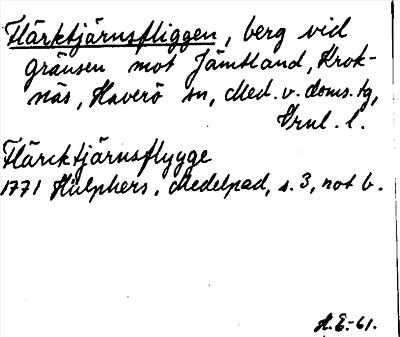 Flärktjärnsfliggen, berg vid
gränsen mot Jämtland, Krok-
näs, Haverö sn, Med. v. doms. tg,
Vrnl. l.
Flärcktjärnsflygge
1771 Hülphers, Medelpad, s. 3, not b.
H. E-61.